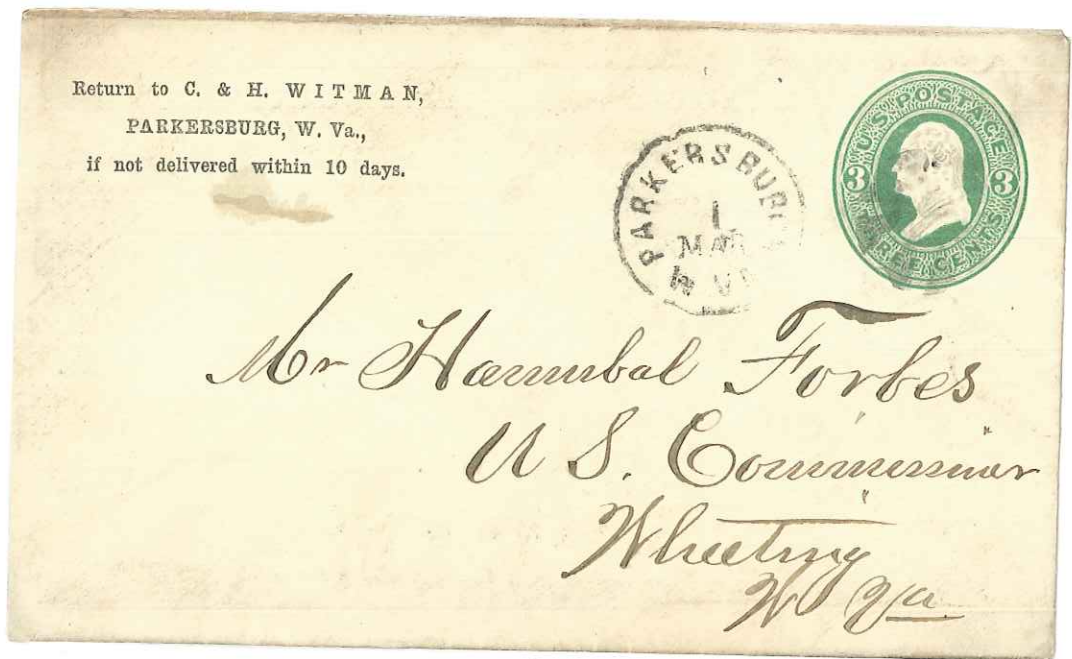 Return to C. & H. WITMAN,
PARKERSBURG, W. Va.,
if not delivered within 10 days.
PARKERSBURG
1
MAR
W VA
U.S. POSTAGE
3 3
THREE CENTS
Mr Hannibal Forbes
U S. Commissioner
Wheeling
W Va